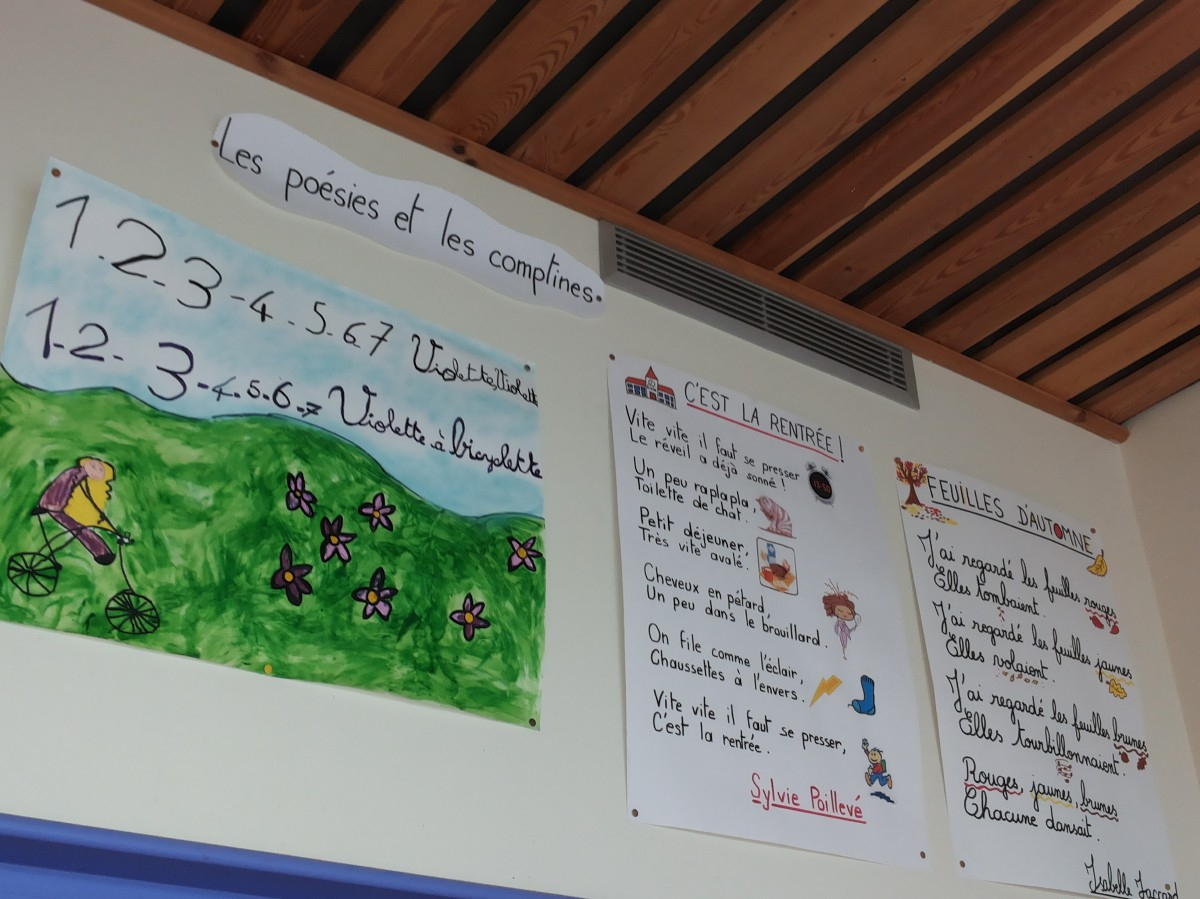 Les poésies et les comptines.
1.2.3-4.5.6.7 Violette, Violette
1.2.3-4.5.6.7 Violette à bicyclette
C'EST LA RENTRÉE !
Vite vite il faut se presser
Le réveil a déjà sonné !
Un peu raplapla,
Toilette de chat.
Petit déjeuner,
Très vite avalé.
Cheveux en pétard,
Un peu dans le brouillard.
On file comme l'éclair,
Chaussettes à l'envers.
Vite vite il faut se presser,
C'est la rentrée.
Sylvie Poillevé
FEUILLES D'AUTOMNE
J'ai regardé les feuilles rouges
Elles tombaient.
J'ai regardé les feuilles jaunes
Elles volaient.
J'ai regardé les feuilles brunes
Elles tourbillonnaient.
Rouges, jaunes, brunes
Chacune dansait.
Isabelle Jaccard